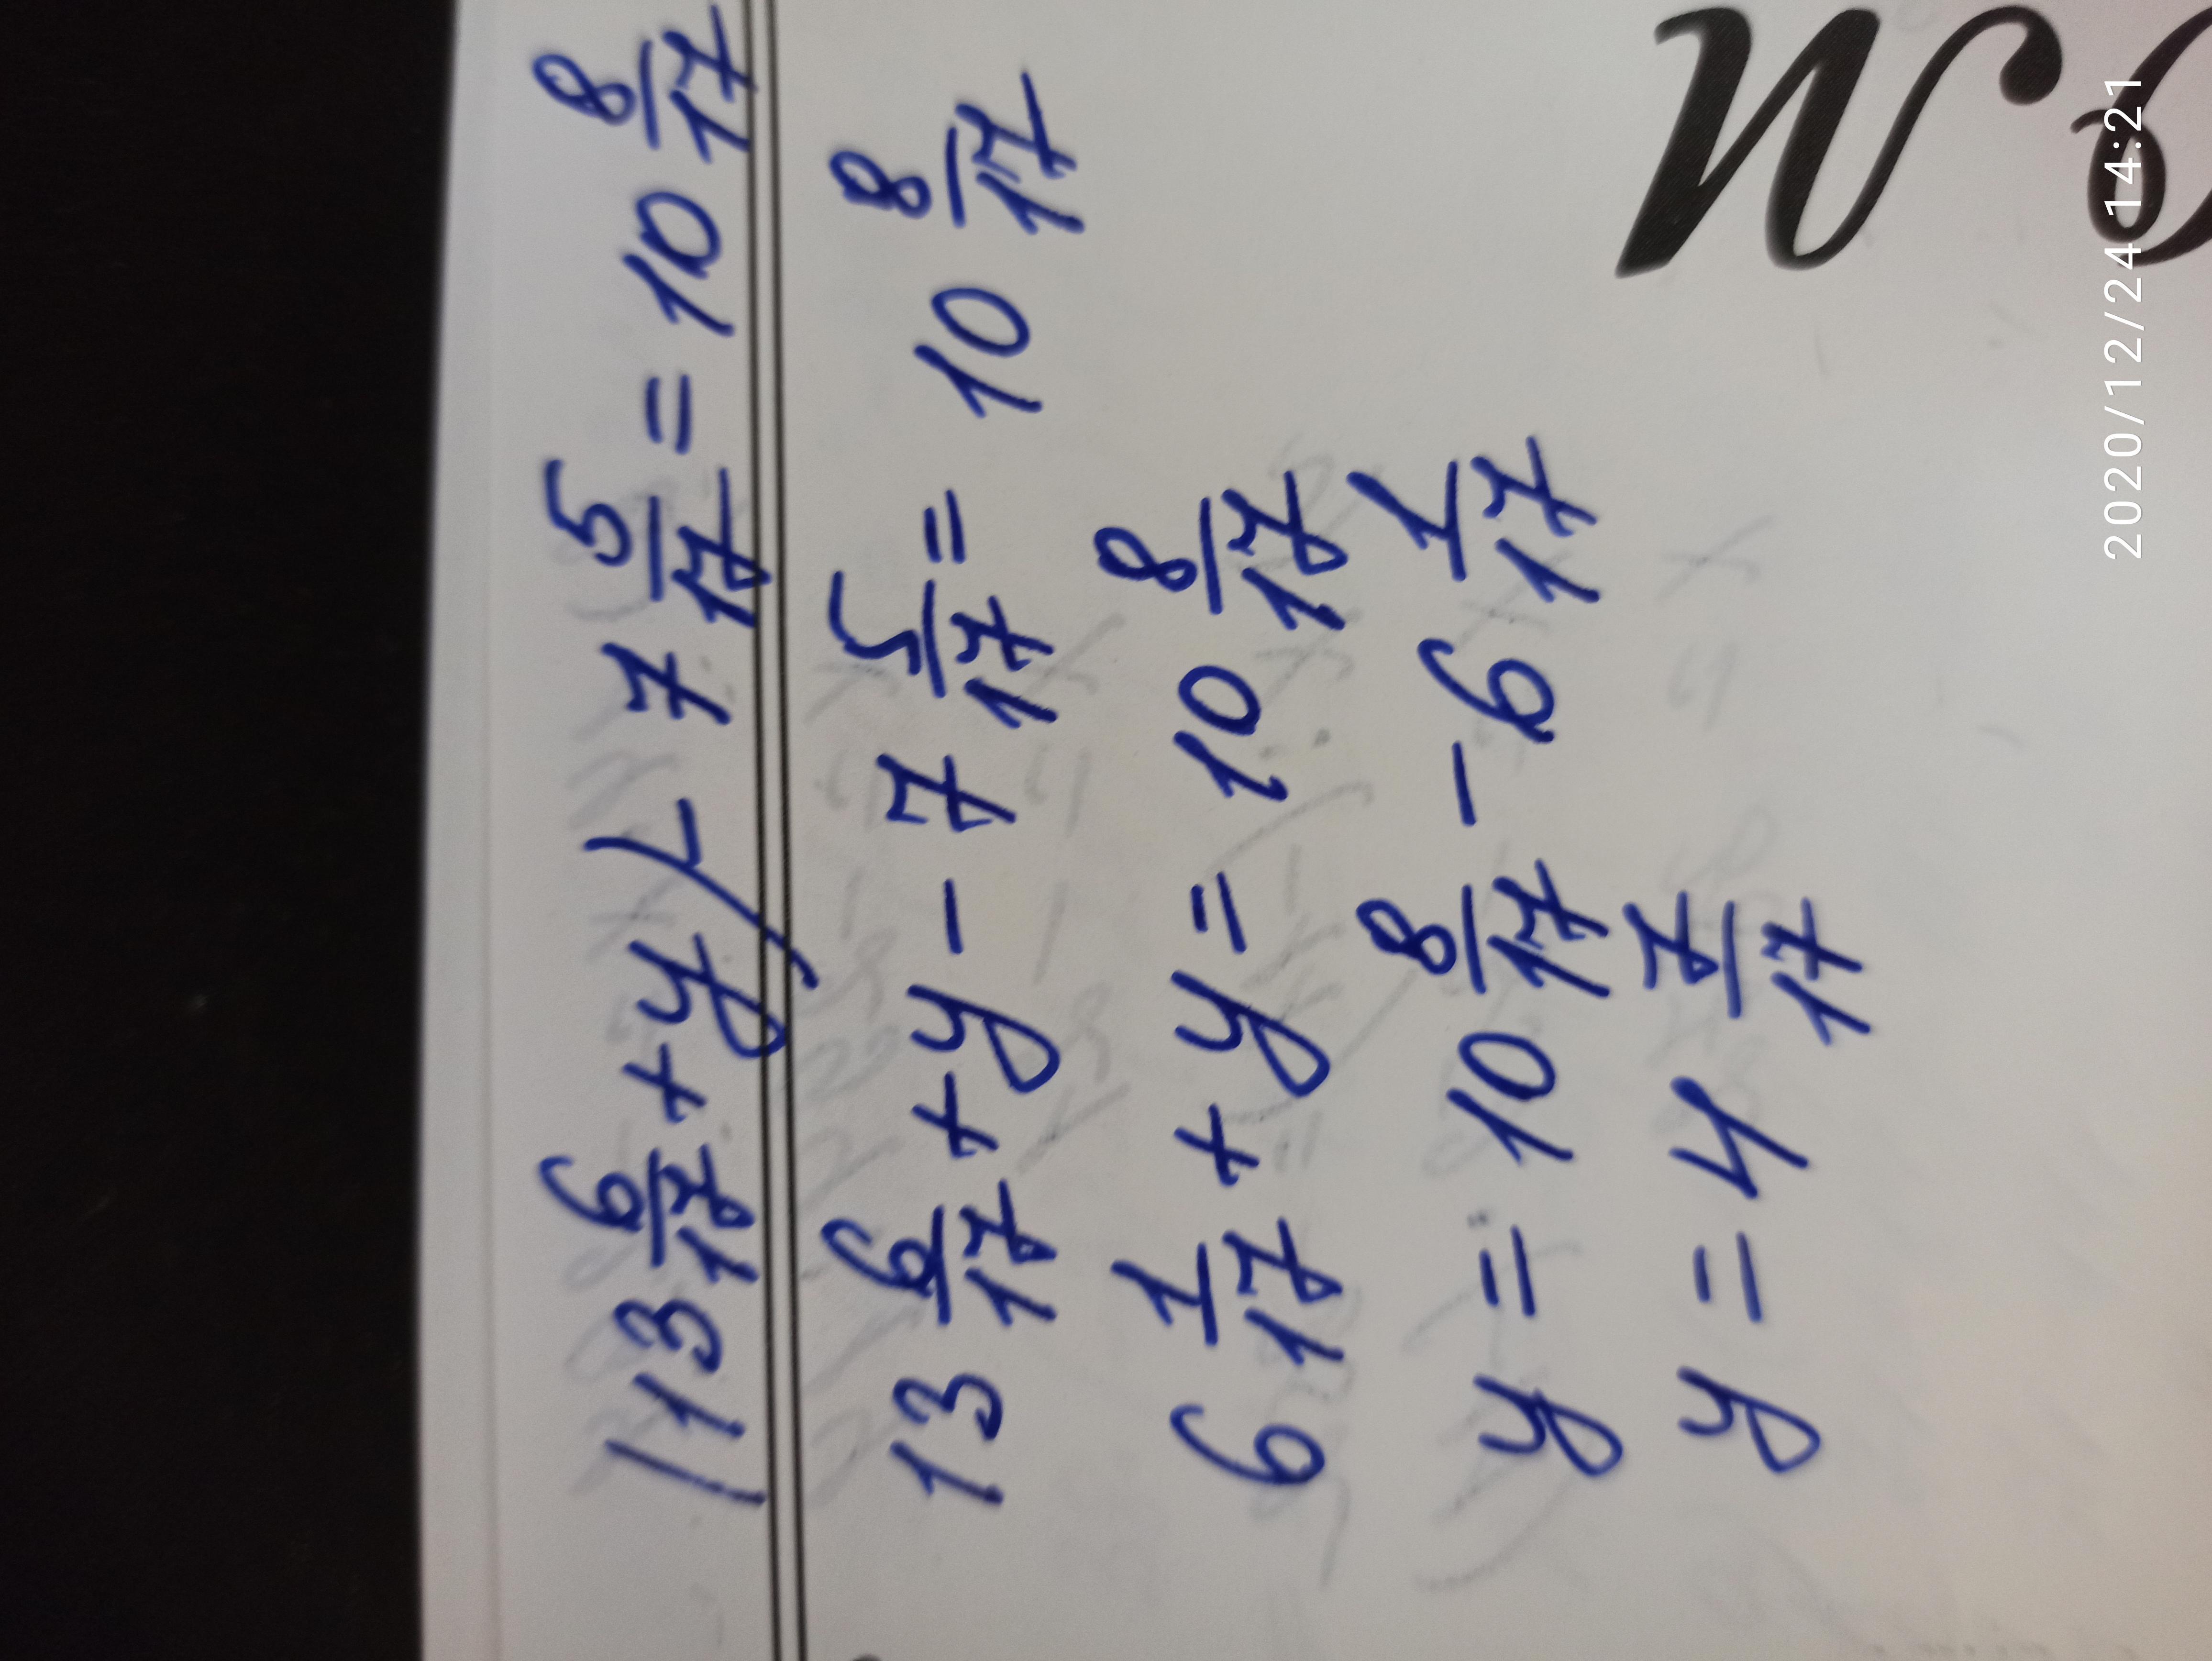 (13 6/17 + y) - 7 5/17 = 10 8/17
13 6/17 + y - 7 5/17 = 10 8/17
6 1/17 + y = 10 8/17
y = 10 8/17 - 6 1/17
y = 4 7/17
2020/12/24 14:21